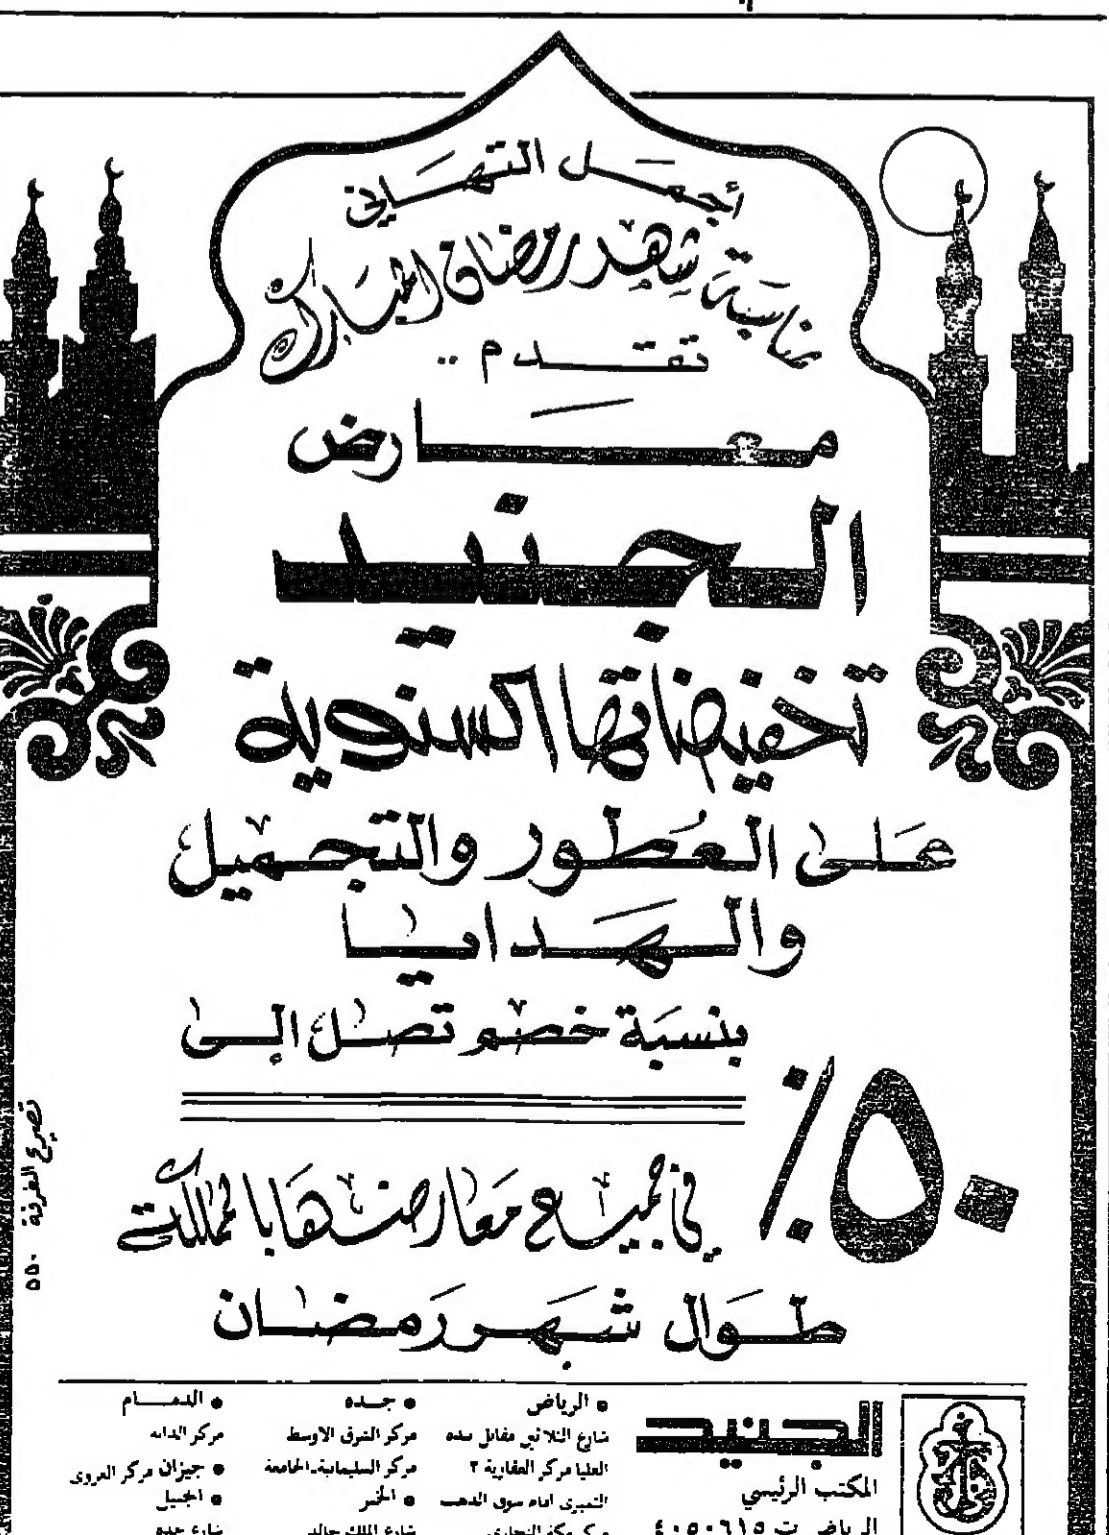 أجمل التهاني
بمناسبة شهر رمضان المبارك
تقدم ..
معارض
الجنيد
تخفيضاتها السنوية
على العطور والتجميل
والهدايا
بنسبة خصم تصل إلى
٥٠٪
في جميع معارضها بالمملكة
طوال شهر رمضان
تصريح الغرفة ٥٥٠
الجنيد
المكتب الرئيسي
الرياض ت ٤٠٥٠٦١٥
• الرياض
شارع الثلاثين مقابل
العليا مركز العقارية ٢
امام سوق الذهب
مركز مكة التجاري
• جدة
مركز الشرق الاوسط
مركز السليمانية-الجامعة
• الخبر
شارع الملك خالد
• الدمام
مركز الدانه
• جيزان مركز العروي
• الجبيل
شارع جده